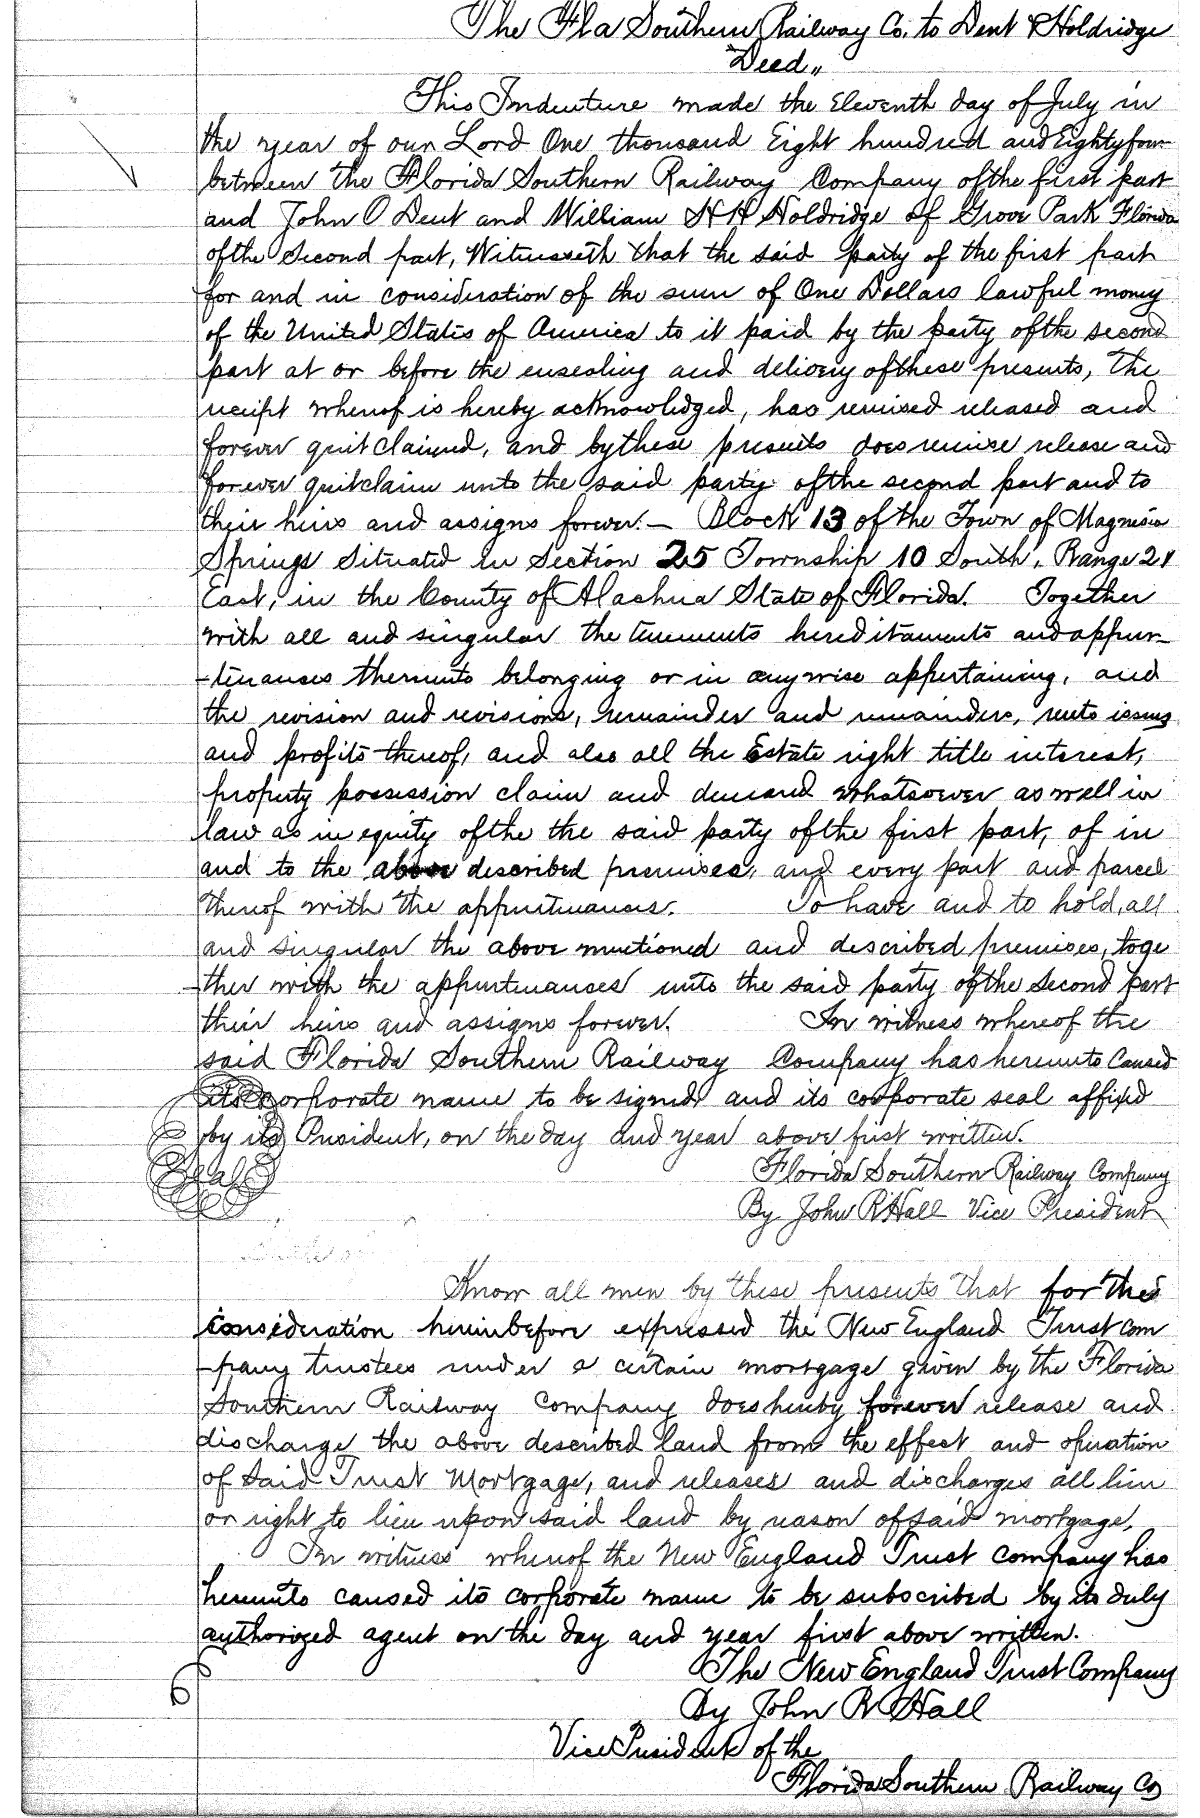 The Fla Southern Railway Co. to Dent & Holdridge
Deed"
This Indenture made the Eleventh day of July in
the year of our Lord One thousand Eight hundred and Eightyfour
between the Florida Southern Railway Company of the first part
and John O Dent and William H H Holdridge of Grove Park Florida
of the Second part, Witnesseth that the said party of the first part
for and in consideration of the sum of One Dollars lawful money
of the United States of America to it paid by the party of the second
part at or before the ensealing and delivery of these presents, the
receipt whereof is hereby acknowledged, has remised released and
forever quitclaimed, and by these presents does remise release and
forever quitclaim unto the said party of the second part and to
their heirs and assigns forever. — Block 13 of the Town of Magnesia
Springs situated in Section 25 Township 10 South, Range 21
East, in the County of Alachua State of Florida. Together
with all and singular the tenements hereditaments and appur-
-tenances thereunto belonging or in anywise appertaining, and
the revision and revisions, remainder and remainders, rents issues
and profits thereof, and also all the Estate right title interest,
property possession claim and demand whatsoever as well in
law as in equity of the the said party of the first part, of in
and to the above described premises, and every part and parcel
thereof with the appurtenances. To have and to hold, all
and singular the above mentioned and described premises, toge
-ther with the appurtenances unto the said party of the Second part
their heirs and assigns forever. In witness whereof the
said Florida Southern Railway Company has hereunto Caused
its corporate name to be signed and its corporate seal affixed
by its President, on the day and year above first written.
Seal
Florida Southern Railway Company
By John R Hall Vice President
Know all men by these presents that for the
consideration hereinbefore expressed the New England Trust Com
-pany trustees under a certain mortgage given by the Florida
Southern Railway Company does hereby forever release and
discharge the above described land from the effect and operation
of Said Trust Mortgage, and releases and discharges all lien
or right to lien upon said land by reason of said mortgage.
In witness whereof the New England Trust Company has
hereunto caused its corporate name to be subscribed by its duly
authorized agent on the day and year first above written.
The New England Trust Company
By John R Hall
Vice President of the
Florida Southern Railway Co